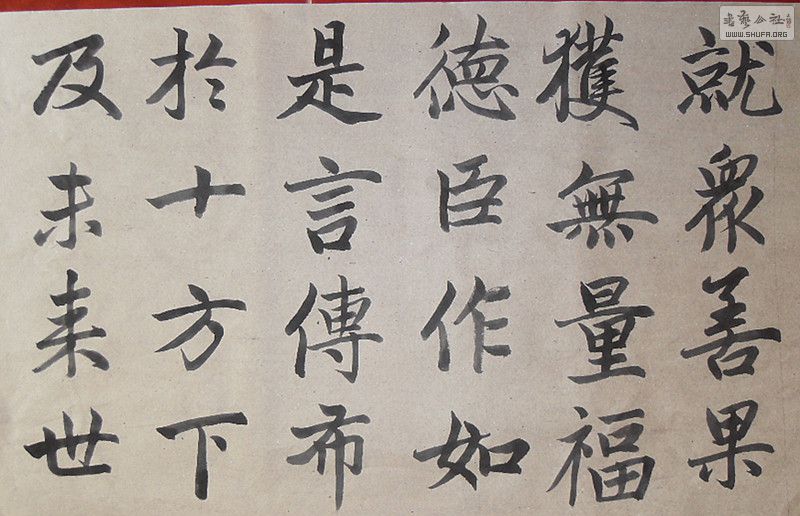 就衆善果
獲無量福
德臣作如
是言傳布
於十方下
及未来世
書藝公社
WWW.SHUFA.ORG